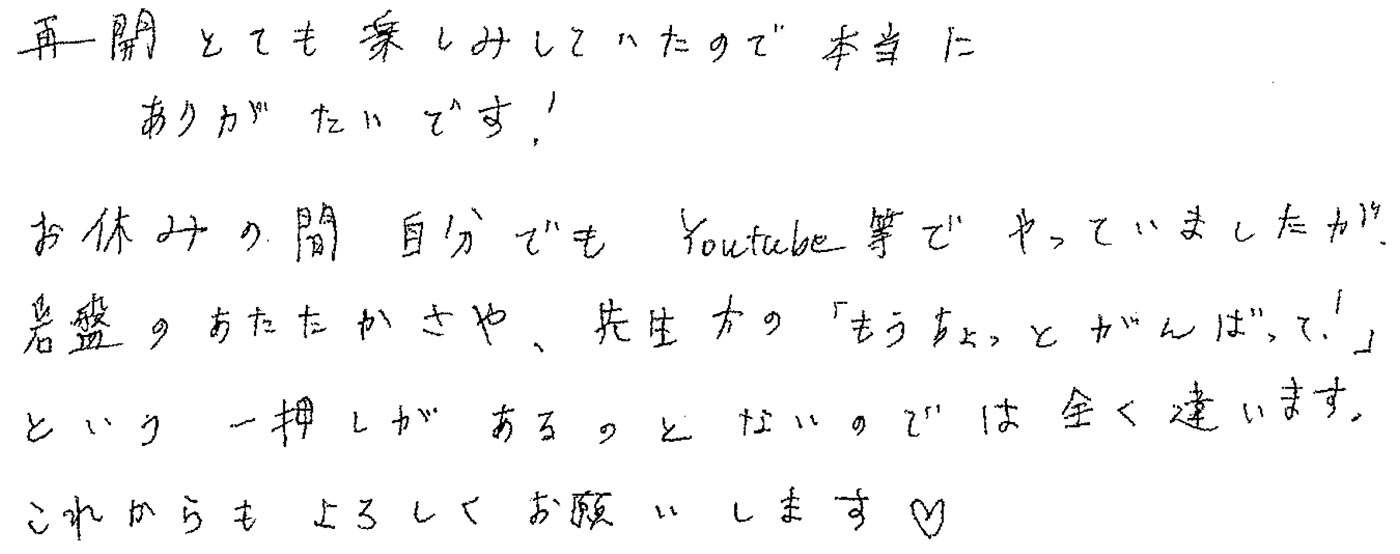 再開とても楽しみしていたので本当に
ありがたいです!
お休みの間 自分でも Youtube等でやっていましたが、
岩盤のあたたかさや、先生方の「もうちょっとがんばって!」
という一押しがあるのとないのでは全く違います。
これからもよろしくお願いします♡